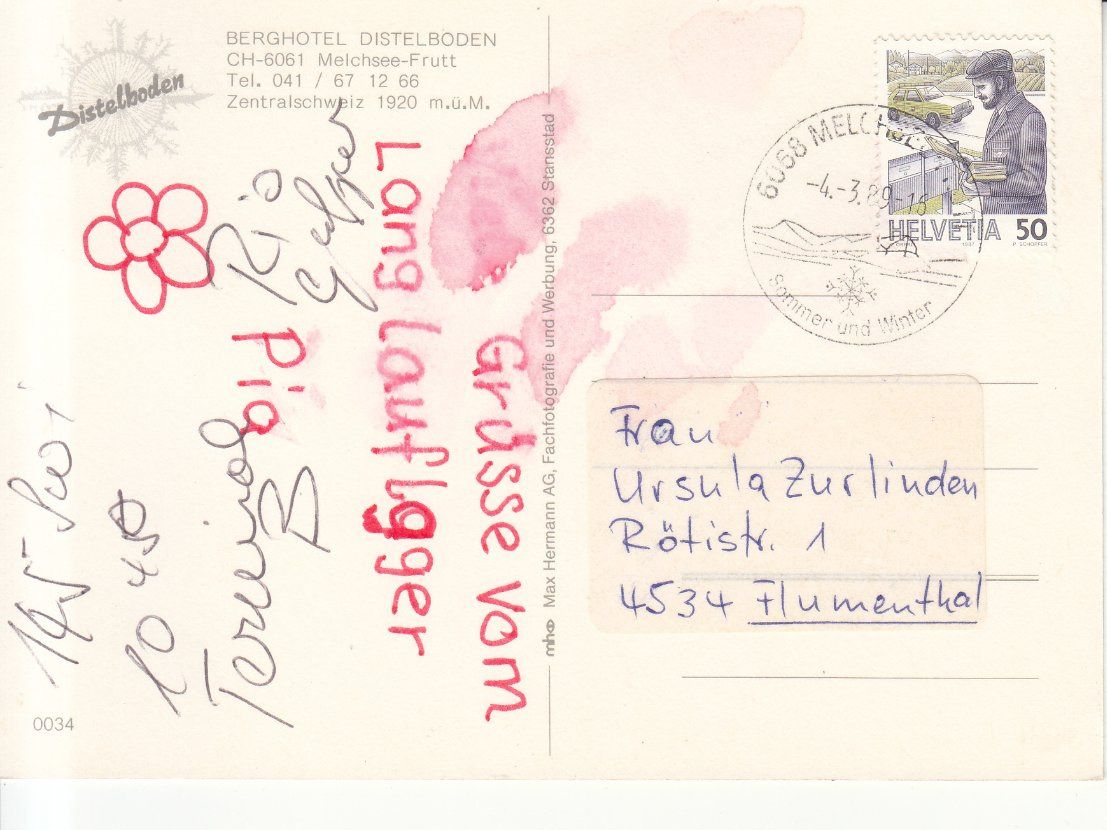 Distelboden
BERGHOTEL DISTELBODEN
CH-6061 Melchsee-Frutt
Tel. 041 / 67 12 66
Zentralschweiz 1920 m.ü.M.
Grüsse vom
Lang Laufläger
Pia
Rio
Terminal
B
10 45
145
0034
mh Max Hermann AG, Fachfotografie und Werbung, 6362 Stansstad
6068 MELCHSEE
-4.-3.89-18
Sommer und Winter
HELVETIA 50
1987 P. SCHOPFER
Frau
Ursula Zurlinden
Rötistr. 1
4534 Flumenthal